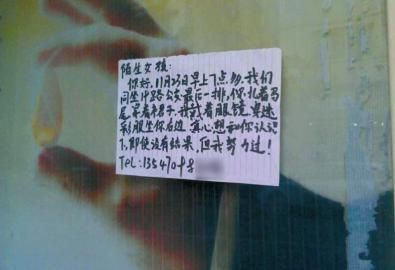 陌生女孩:
你好,11月23日早上7点多,我们
同坐17路公交最后一排,你扎着马
尾,穿着,我戴着眼镜,穿迷
彩服坐你右边,真心想和你认识
下,即使没有结果,但我努力过!
TEL:135470